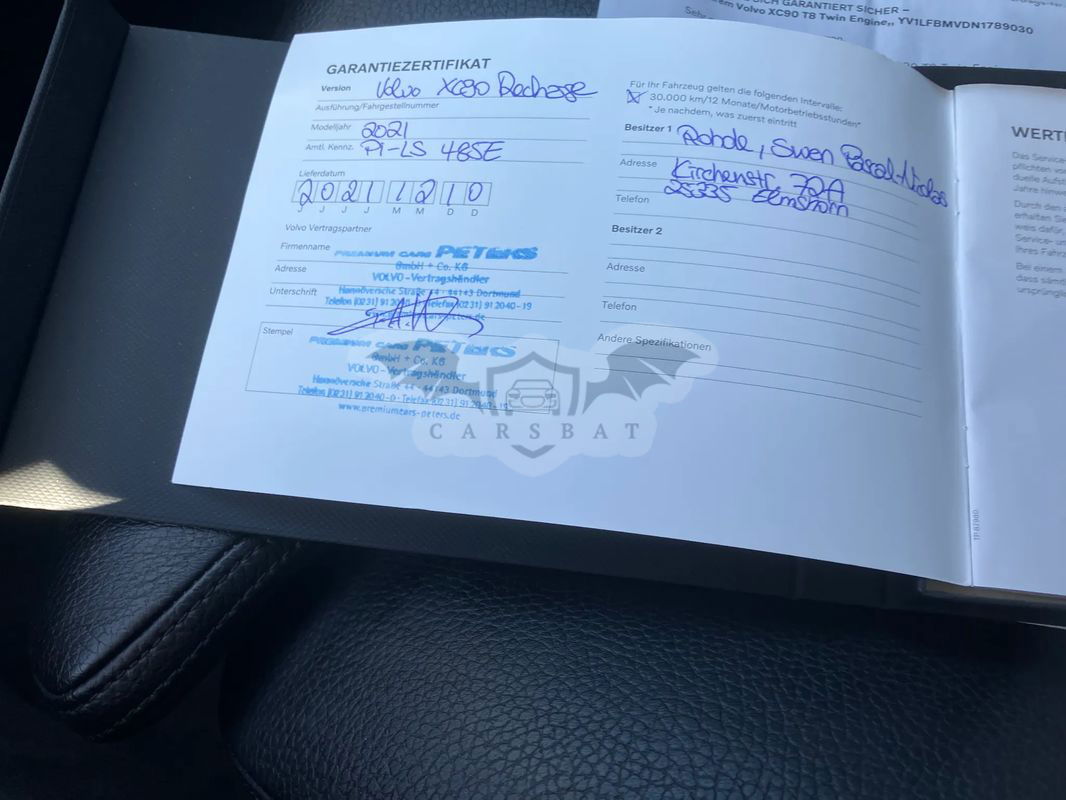 DICH GARANTIERT SICHER –
em Volvo XC90 T8 Twin Engine,, YV1LFBMVDN1789030
GARANTIEZERTIFIKAT
Version Volvo XC90 Recharge
Ausführung/Fahrgestellnummer
Modelljahr 2021
Amtl. Kennz. PI-LS 485E
Lieferdatum
2 0 2 1 1 2 1 0
J J J J M M D D
Volvo Vertragspartner
Firmenname PREMIUM CARS PETERS
GmbH + Co. KG
Adresse VOLVO-Vertragshändler
Hannöversche Straße 44 · 44143 Dortmund
Unterschrift Telefon (0231) 912040-0 · Telefax (0231) 912040-19
Stempel
PREMIUM CARS PETERS
GmbH + Co. KG
VOLVO-Vertragshändler
Hannöversche Straße 44 · 44143 Dortmund
Telefon (0231) 912040-0 · Telefax (0231) 912040-19
www.premiumcars-peters.de
Für Ihr Fahrzeug gelten die folgenden Intervalle:
30.000 km/12 Monate/Motorbetriebsstunden*
* Je nachdem, was zuerst eintritt
Besitzer 1 Rohde, Swen Pascal-Niclas
Adresse Kirchenstr. 72A
25335 Elmshorn
Telefon
Besitzer 2
Adresse
Telefon
Andere Spezifikationen
CARSBAT
WERT
Das Service-
pflichten vo
duelle Aufst
Jahre hinwe
Durch den
erhalten Sie
weis dafür,
Service- un
Ihres Fahrz
Bei einem
dass sämt
ursprünglic
TP 87980